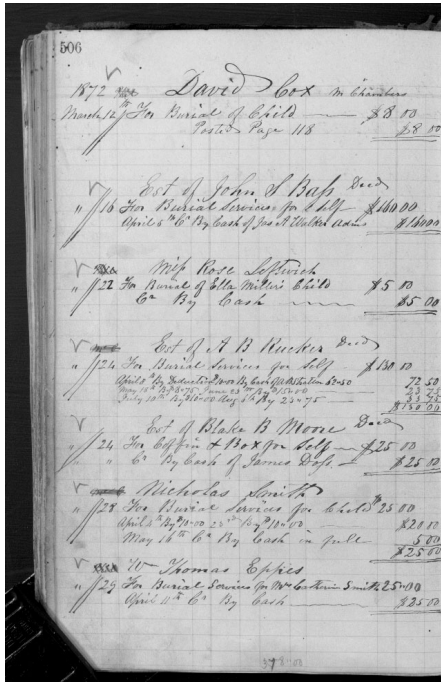 506
1872 David Cox M Chambers
March 12 For Burial of Child $8 00
Posted Page 118 $8 00
Est of John S Bass Decd
" 16 For Burial Services for Self $160 00
April 5th Cr By Cash of Jas A Walker Adm $160 00
Miss Rose Leftwich
" 22 For Burial of Ella Miller's Child $5 00
Cr By Cash $5 00
Est of A B Rucker Decd
" 24 For Burial Services for Self $130 00
April By Deduction 10 00 By Cash 62-50 72 50
May By 8-75 June 23rd By 15-00 23 75
July 10th By 10-00 Aug 5th By 23-75 33 75
$130 00
Est of Blake B Moore Decd
" 24 For Coffin & Box for Self $25 00
" " Cr By Cash of James Doss $25 00
Nicholas Smith
" 28 For Burial Services for Child $25 00
April By 10-00 22nd By 10-00 $20 00
May 16th Cr By Cash in full 5 00
$25 00
Thomas Eppes
" 29 For Burial Services for Mrs Catherine Smith 25-00
April Cr By Cash $25 00
378.00